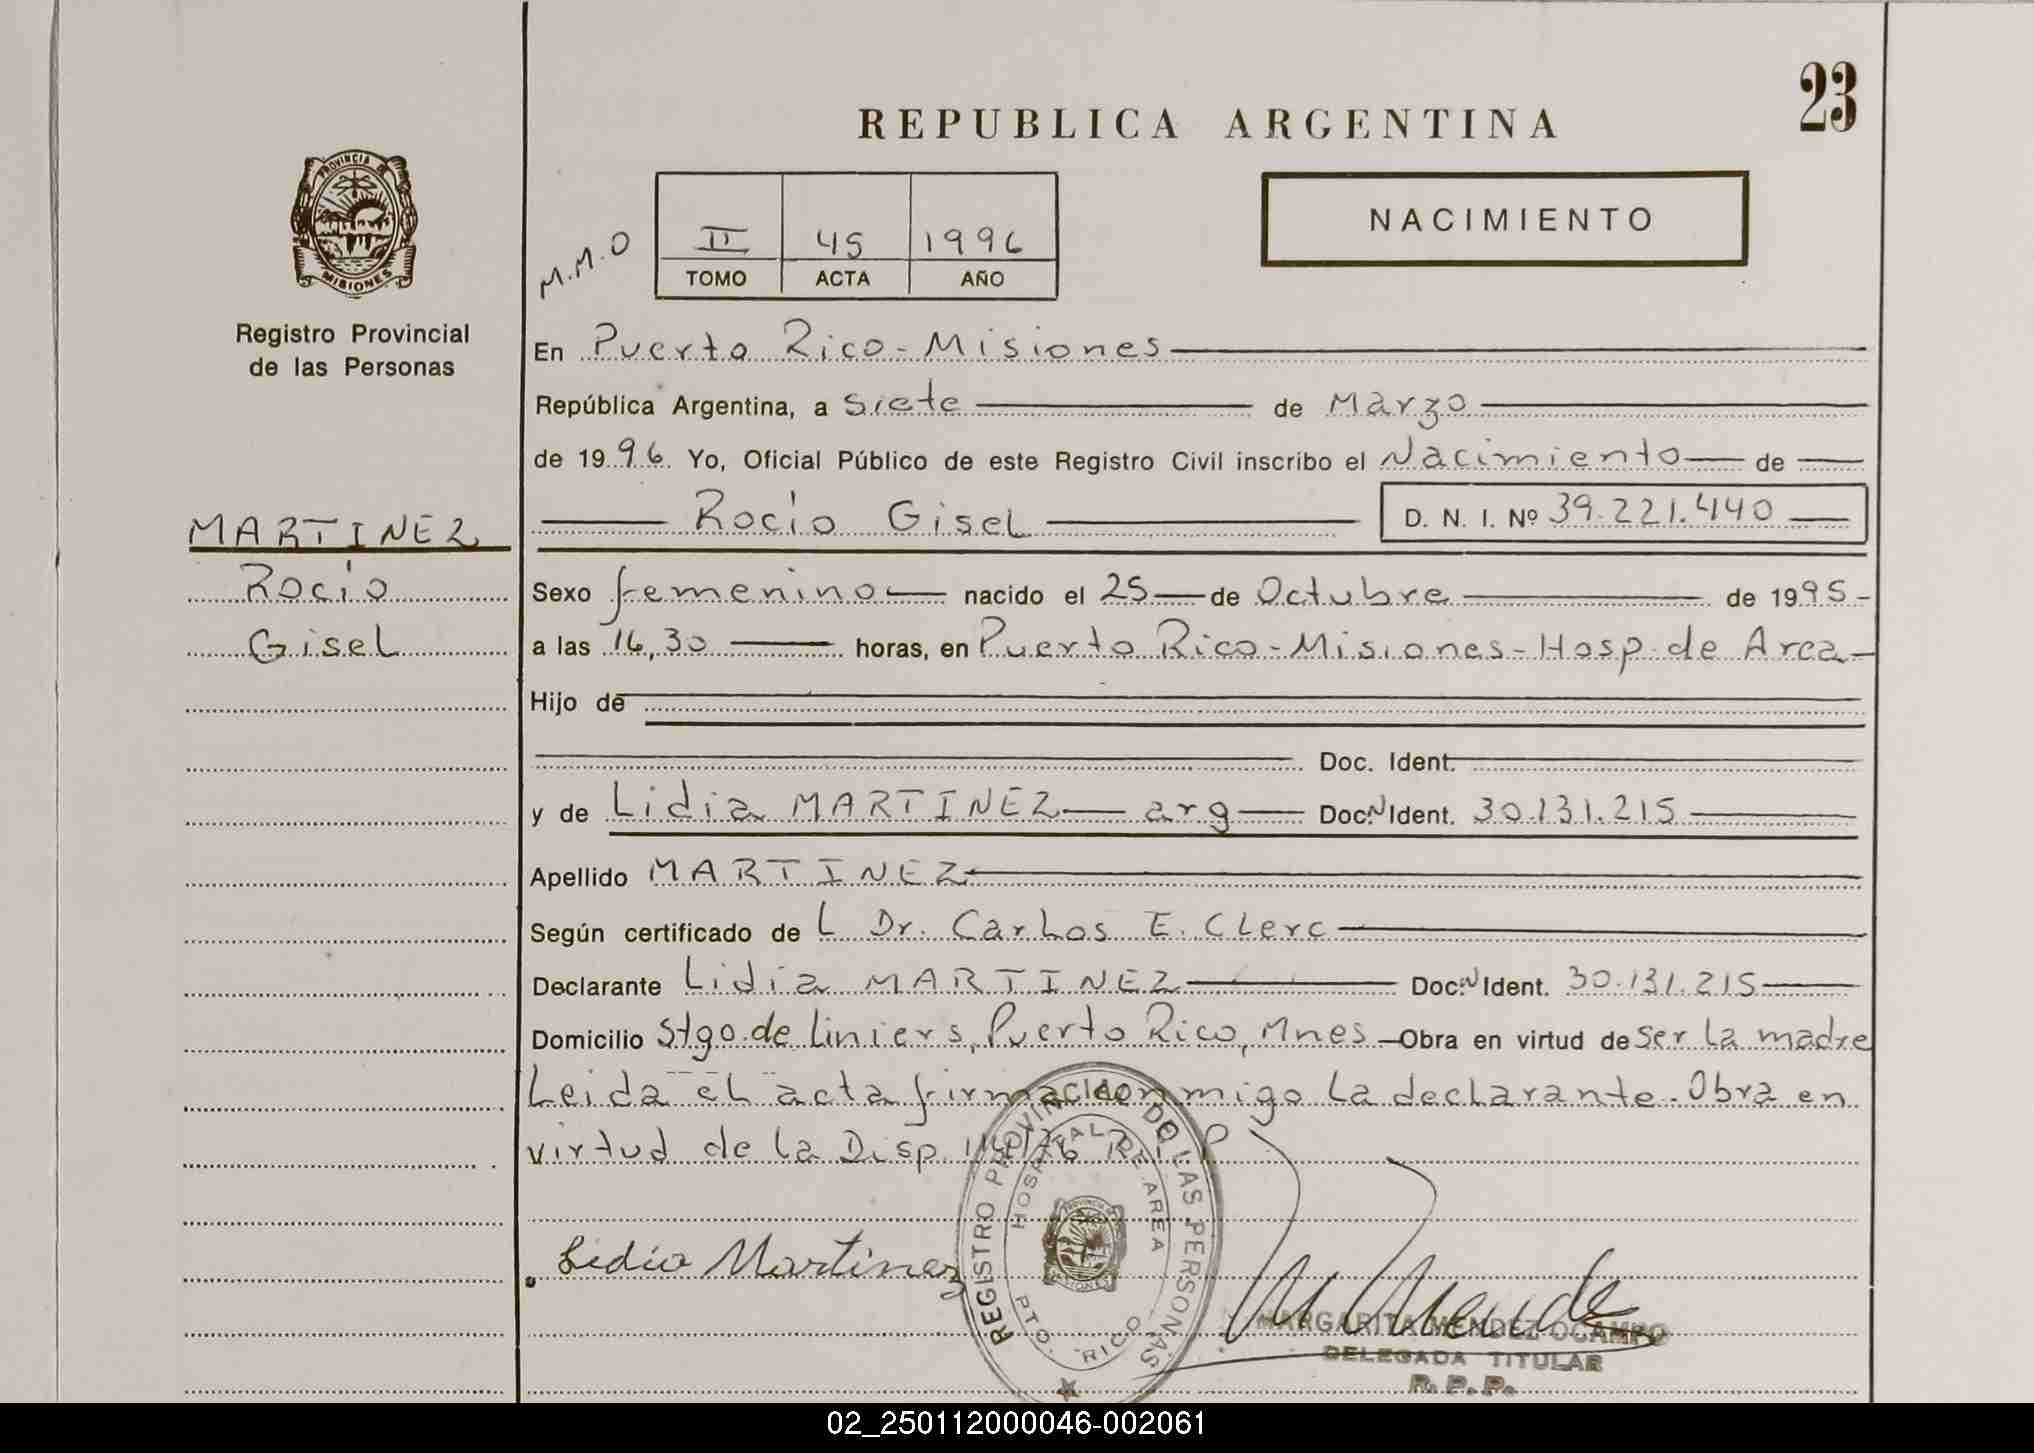 23
REPUBLICA ARGENTINA
NACIMIENTO
PROVINCIA DE
MISIONES
Registro Provincial
de las Personas
M.M.O
II 45 1996
TOMO ACTA AÑO
En Puerto Rico - Misiones
República Argentina, a siete de Marzo
de 1996. Yo, Oficial Público de este Registro Civil inscribo el Nacimiento de
Rocío Gisel D. N. I. Nº 39.221.440
MARTINEZ
Rocío
Gisel
Sexo femenino nacido el 25 de Octubre de 1995-
a las 16,30 horas, en Puerto Rico - Misiones - Hosp. de Area -
Hijo de
Doc. Ident.
y de Lidia MARTINEZ arg Doc. N Ident. 30.131.215
Apellido MARTINEZ
Según certificado de L Dr. Carlos E. Clerc
Declarante Lidia MARTINEZ Doc. N Ident. 30.131.215
Domicilio Stgo. de Liniers, Puerto Rico, Mnes - Obra en virtud de ser la madre
Leida el acta firma conmigo la declarante. Obra en
virtud de la Disp.
Lidia Martinez
REGISTRO PROVINCIAL DE LAS PERSONAS
HOSPITAL DE AREA
PTO. RICO
MISIONES
MARGARITA MENDEZ OCAMPO
DELEGADA TITULAR
R. P. P.
02_250112000046-002061